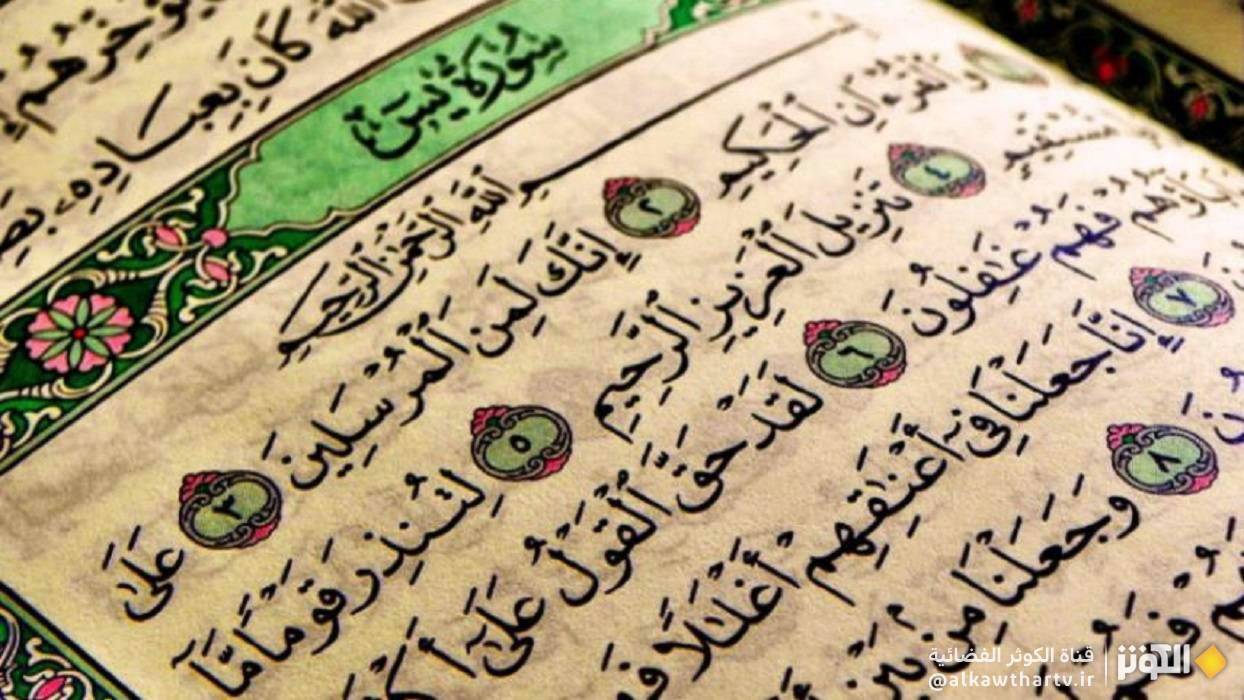 يُؤَخِّرُهُمْ
ٱللَّهَ كَانَ بِعِبَادِهِۦ
سُورَةُ يسٓ
بِسْمِ ٱللَّهِ ٱلرَّحْمَٰنِ ٱلرَّحِيمِ
وَٱلْقُرْءَانِ ٱلْحَكِيمِ ٢ إِنَّكَ لَمِنَ ٱلْمُرْسَلِينَ ٣ عَلَىٰ
مُّسْتَقِيمٍ ٤ تَنزِيلَ ٱلْعَزِيزِ ٱلرَّحِيمِ ٥ لِتُنذِرَ قَوْمًا مَّآ
ءَابَآؤُهُمْ فَهُمْ غَٰفِلُونَ ٦ لَقَدْ حَقَّ ٱلْقَوْلُ عَلَىٰٓ
٧ إِنَّا جَعَلْنَا فِىٓ أَعْنَٰقِهِمْ أَغْلَٰلًا
٨ وَجَعَلْنَا مِنۢ بَيْنِ
الكوثر
قناة الكوثر الفضائية
@alkawthartv.ir